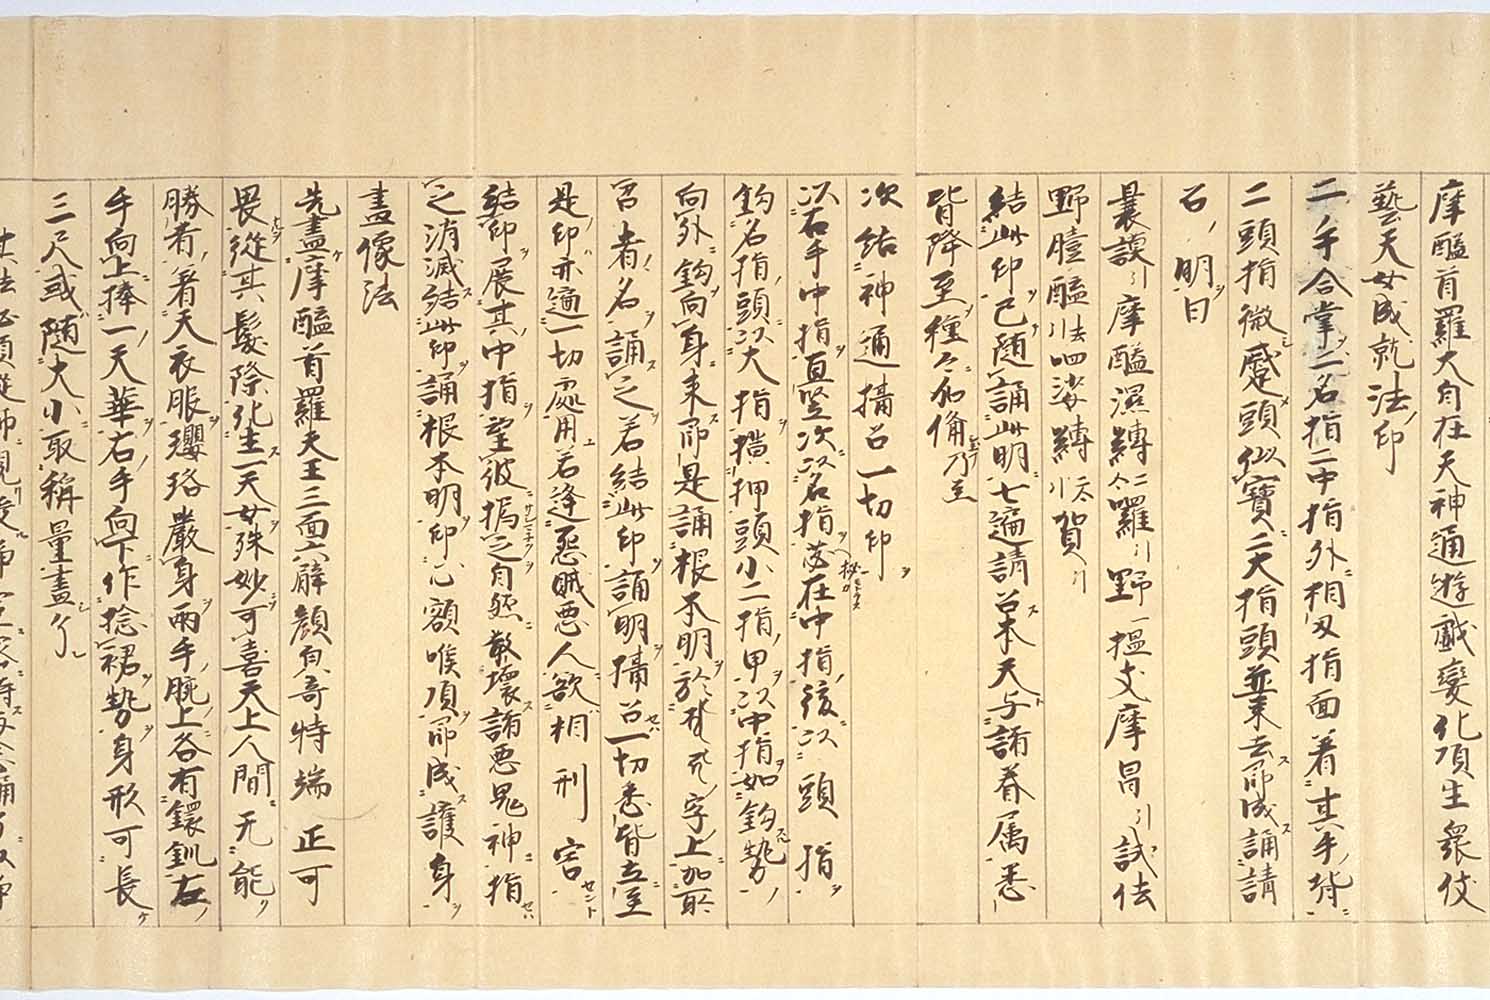 摩醯首羅大自在天神通遊戲變化項生衆伎
藝天女成就法印
二手合掌二名指二中指外相叉指面着其手背
二頭指微蹙頭似寶二大指頭並来去即成誦請
召明曰
曩謨引摩醯濕縛二合囉引野一摳支摩昌引試佉
野醯醯引去呬娑縛引二合賀引
結此印已随誦此明七遍請召本天与諸眷属悉
皆降至種々加備乃至
次結神通攝召一切印
以右手中指直竪次以名指在中指後以頭指
鈎名指頭以大指横押頭小二指甲以中指如鈎勢
向外鈎向身来即是誦根本明於字上加所
召者名誦之若結此印誦明攝召一切悉皆立至
是印亦遍一切處用若逢惡賊惡人欲相刑害
結印展其中指望彼撝之自然散壞諸悪鬼神指
之消滅結此印誦根本明印心額喉項即成護身
畫像法
先畫摩醯首羅天王三面六臂顔皃奇特端正可
畏從其髮際化生一天女殊妙可喜天上人間无能
勝者着天衣服瓔珞嚴身兩手腕上各有鐶釧左
手向上捧一天華右手向下作捻裙勢身形可長
三尺或随大小取稱量畫了